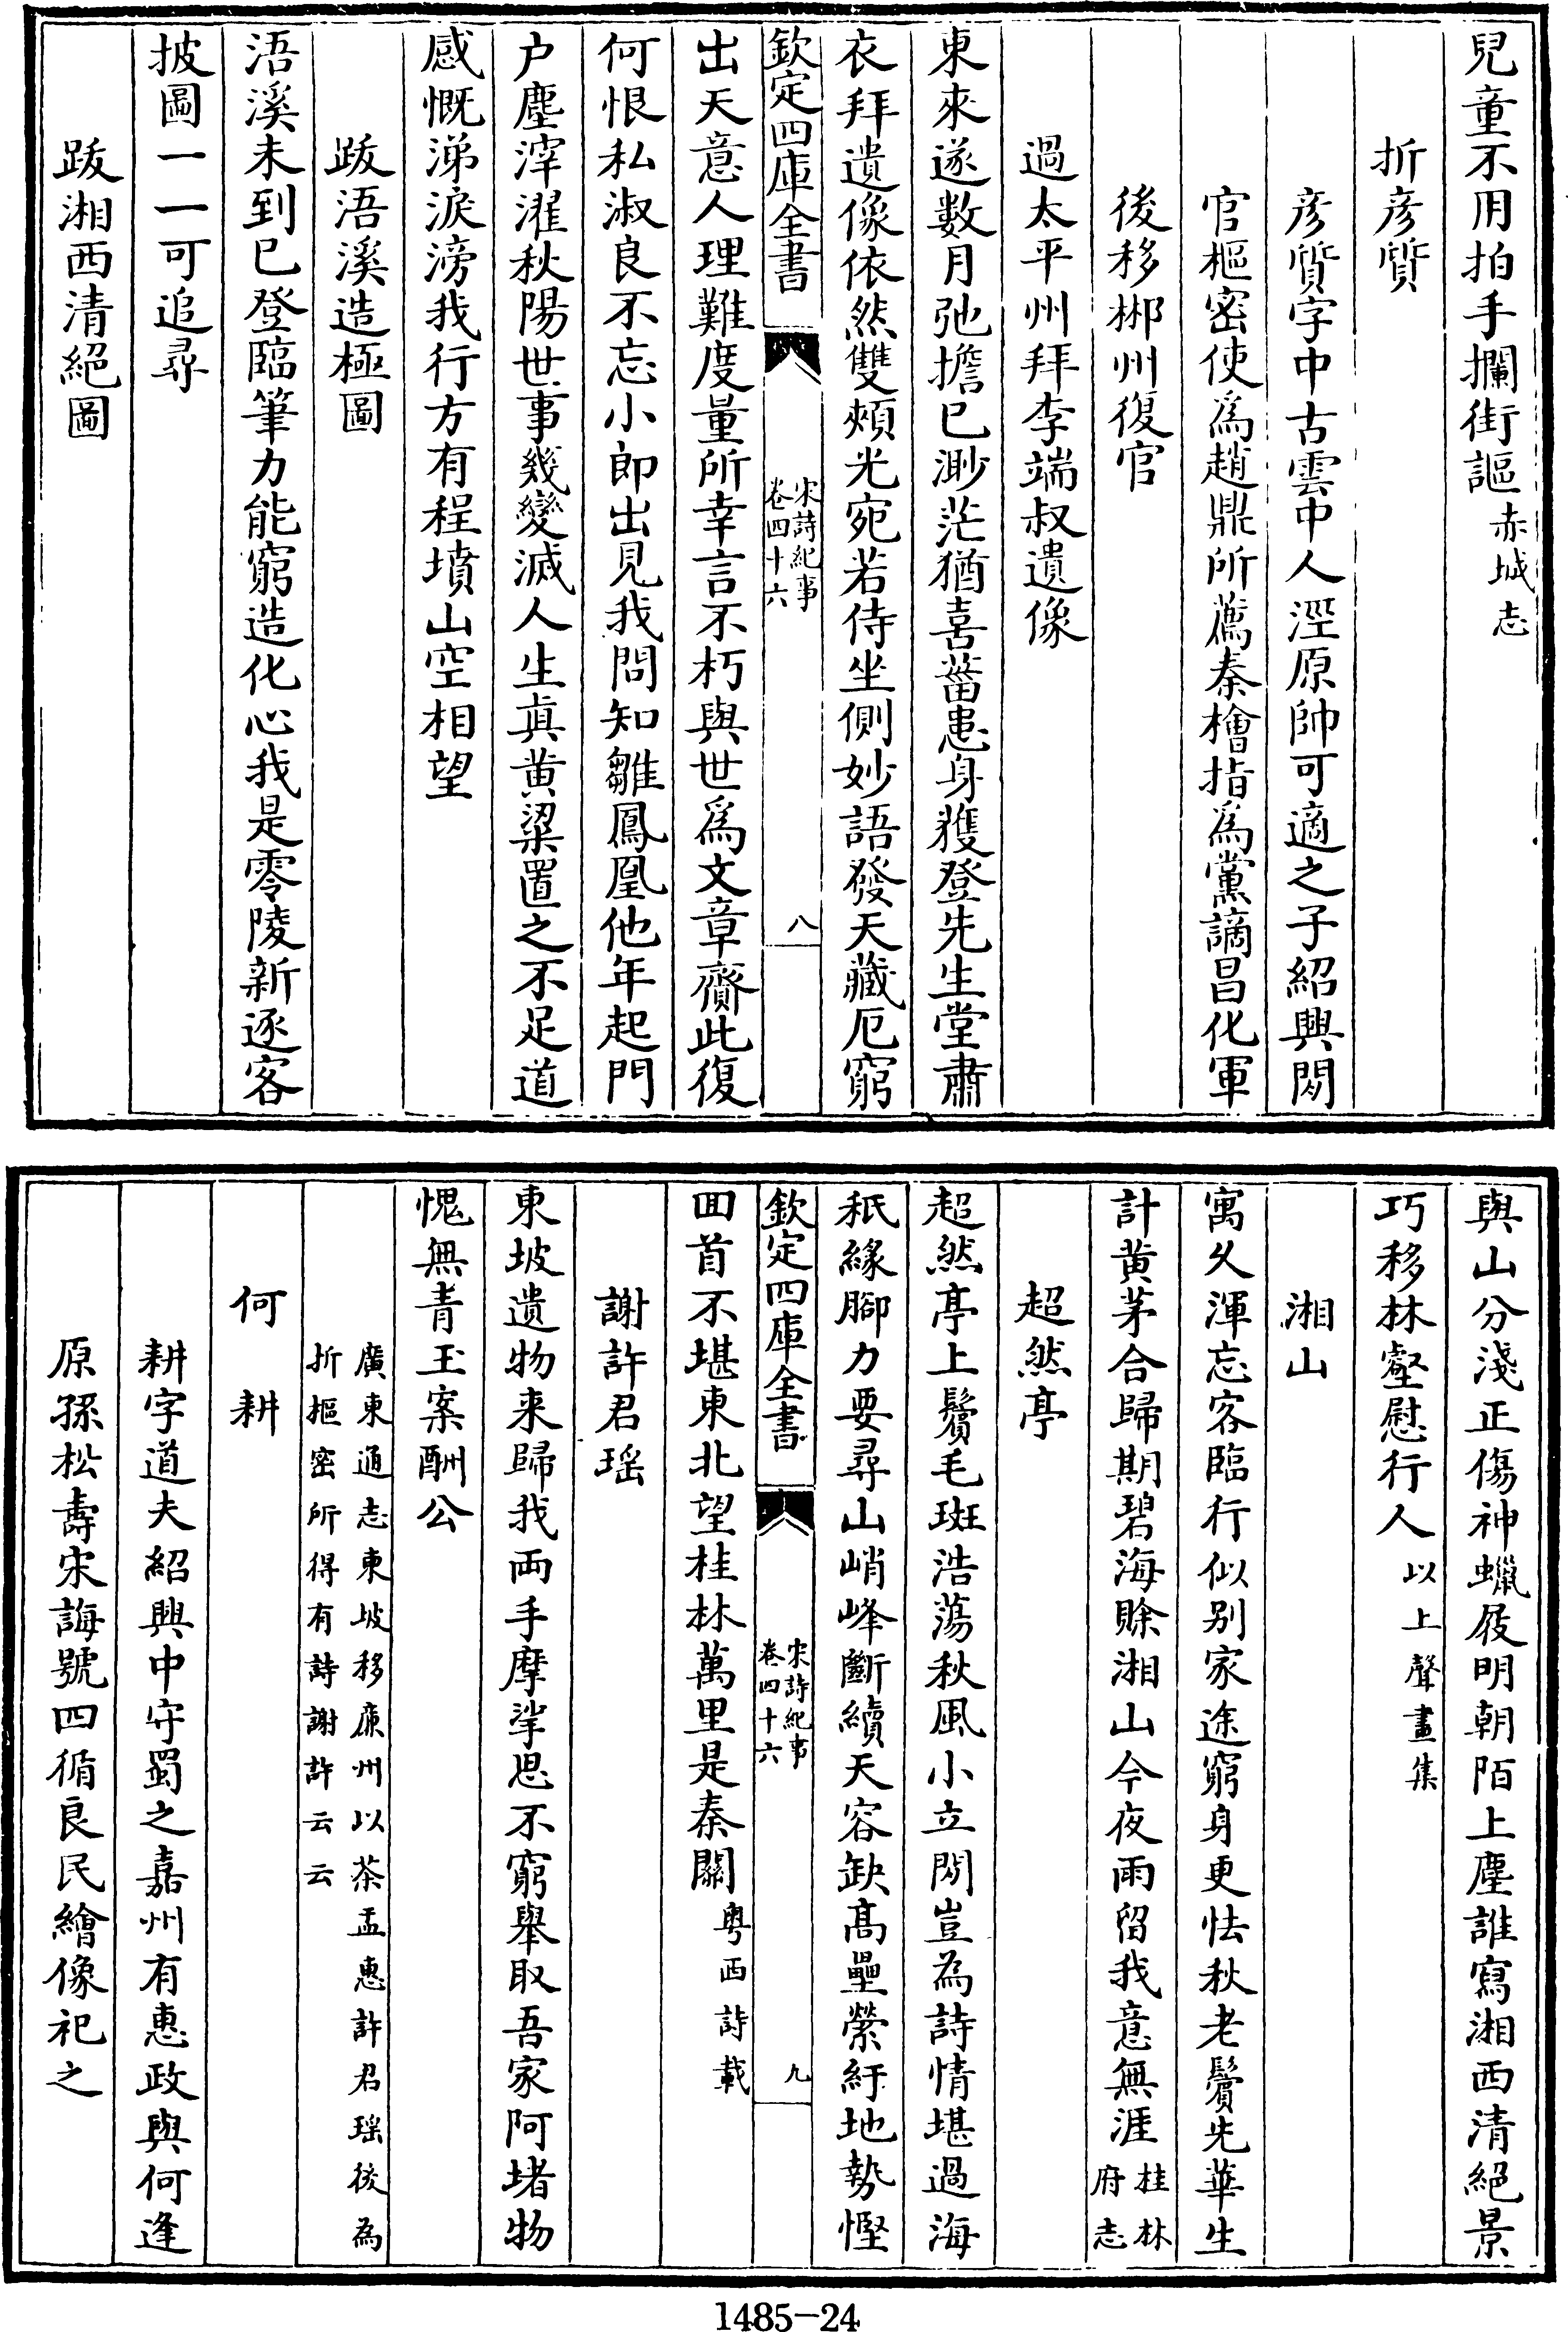 兒童不用拍手攔街謳赤城志
折彦質
彦質字中古雲中人涇原帥可適之子紹興間
官樞密使為趙鼎所薦秦檜指為黨謫昌化軍
後移郴州復官
過太平州拜李端叔遺像
東來遂數月弛擔已渺茫猶喜菑患身獲登先生堂肅
衣拜遺像依然雙頰光宛若侍坐側妙語發天藏厄窮
欽定四庫全書
宋詩紀事
卷四十六
八
出天意人理難度量所幸言不朽與世為文章齎此復
何恨私淑良不忘小郎出見我問知雛鳳凰他年起門
户塵滓濯秋陽世事幾變滅人生真黄粱置之不足道
感慨涕淚滂我行方有程墳山空相望
跋浯溪造極圖
浯溪未到已登臨筆力能窮造化心我是零陵新逐客
披圖一一可追尋
跋湘西清絕圖
與山分淺正傷神蠟屐明朝陌上塵誰寫湘西清絕景
巧移林壑慰行人以上聲畫集
湘山
寓久渾忘客臨行似别家途窮身更怯秋老鬢先華生
計黄茅合歸期碧海賖湘山今夜雨留我意無涯桂林
府志
超然亭
超然亭上鬢毛斑浩蕩秋風小立間豈為詩情堪過海
秖緣腳力要尋山峭峰斷續天容缺髙壘縈紆地勢慳
欽定四庫全書
宋詩紀事
卷四十六
九
回首不堪東北望桂林萬里是秦關粤西詩載
謝許君瑶
東坡遺物来歸我兩手摩挲思不窮舉取吾家阿堵物
愧無青玉案酬公
廣東通志東坡移廉州以茶盂惠許君瑶後為
折樞密所得有詩謝許云云
何耕
耕字道夫紹興中守蜀之嘉州有惠政與何逢
原孫松壽宋誨號四循良民繪像祀之
1485-24